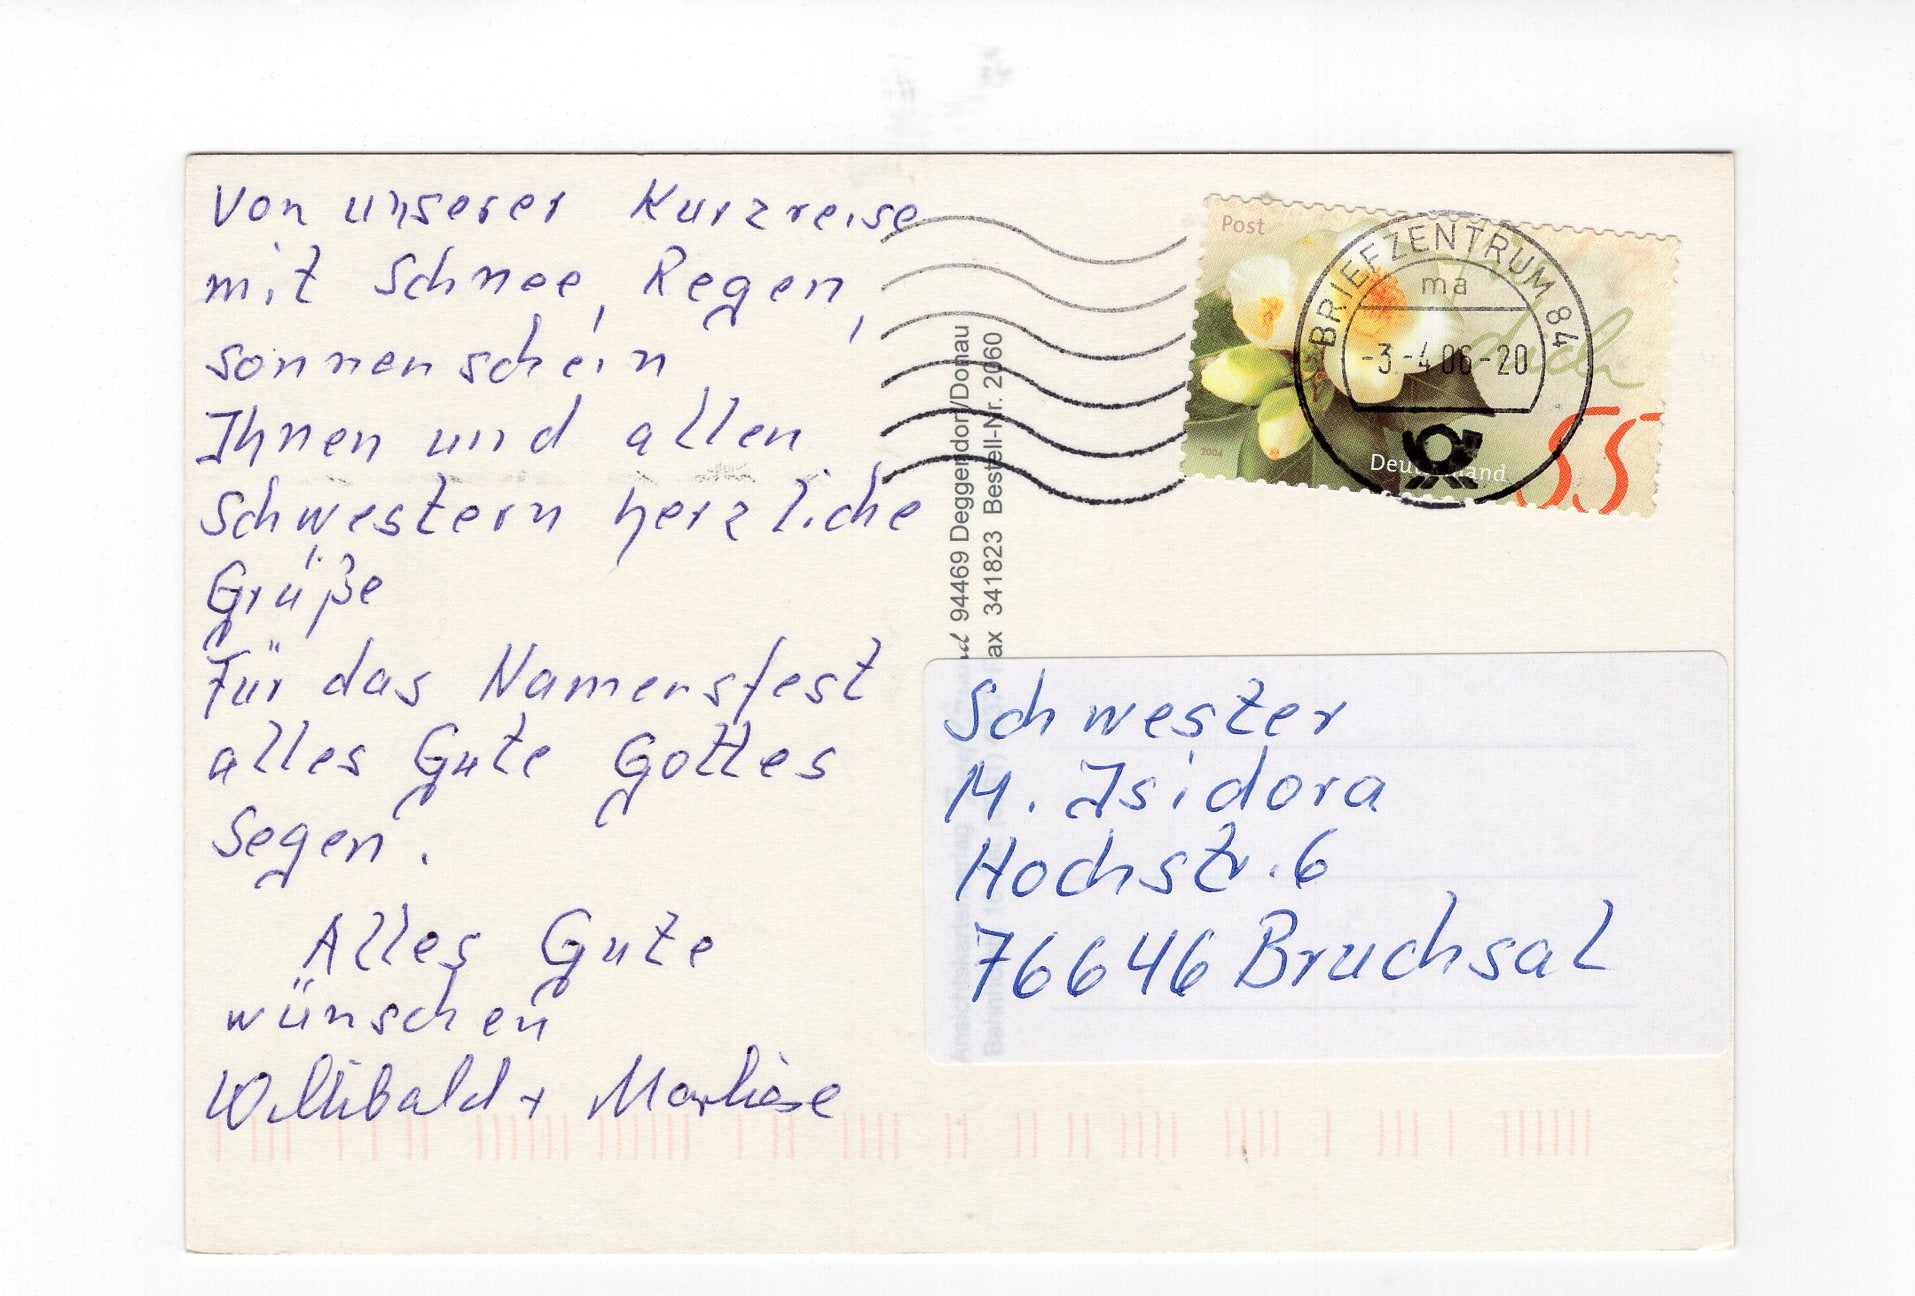 Von unserer Kurzreise
mit Schnee, Regen,
Sonnenschein
Ihnen und allen
Schwestern herzliche
Grüße
Für das Namensfest
alles Gute Gottes
Segen.
Alles Gute
wünschen
Willibald + Marliese
94469 Deggendorf/Donau
ax 341823 Bestell-Nr. 2060
Post
BRIEFZENTRUM 84
ma
-3.-4.06-20
2004
Deutschland
55
Schwester
M. Isidora
Hochstr. 6
76646 Bruchsal